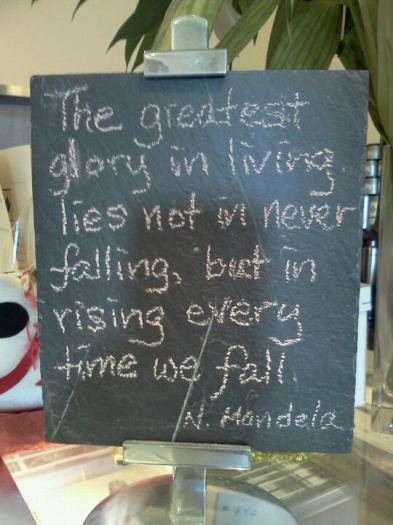 The greatest
glory in living
lies not in never
falling, but in
rising every
time we fall.
N. Mandela